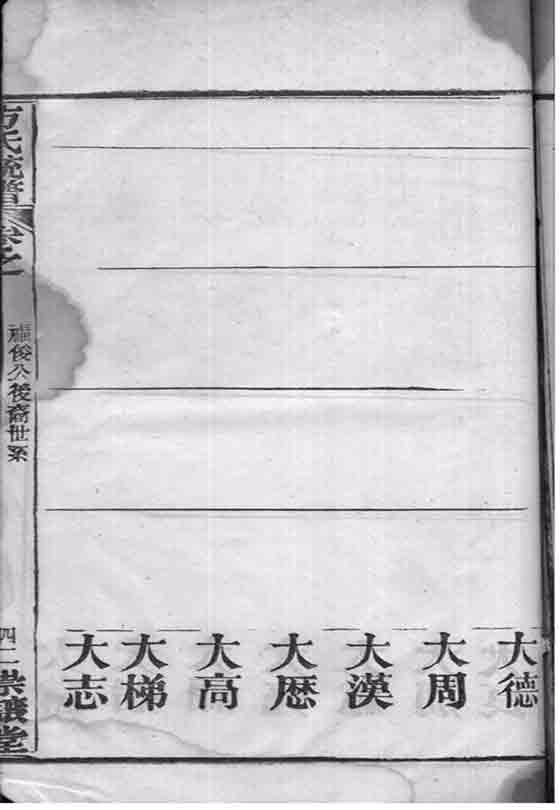 大德
大周
大漢
大歷
大高
大梯
大志
方氏統譜
卷之一
福俊公後裔世系
四二
崇讓堂